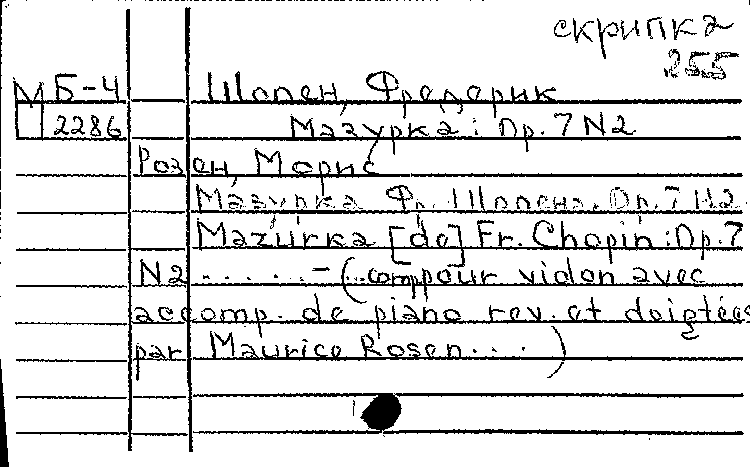 скрипка
255
М Б-4 Шопен, Фредерик
2286 Мазурка: Op. 7 N2
Розен, Морис
Мазурка Фр. Шопена. Op. 7 N2.
Mazurka [de] Fr. Chopin: Op. 7
N2 . . . . . . - (... comp pour violon avec
accomp. de piano rev. et doigtées
par Maurice Rosen . . . . )